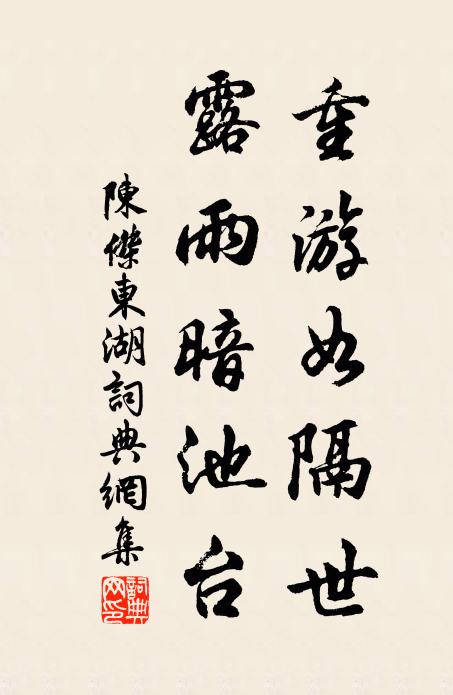 重游如隔世
露雨暗池台
陳傑東湖詞典網集
詞典网印